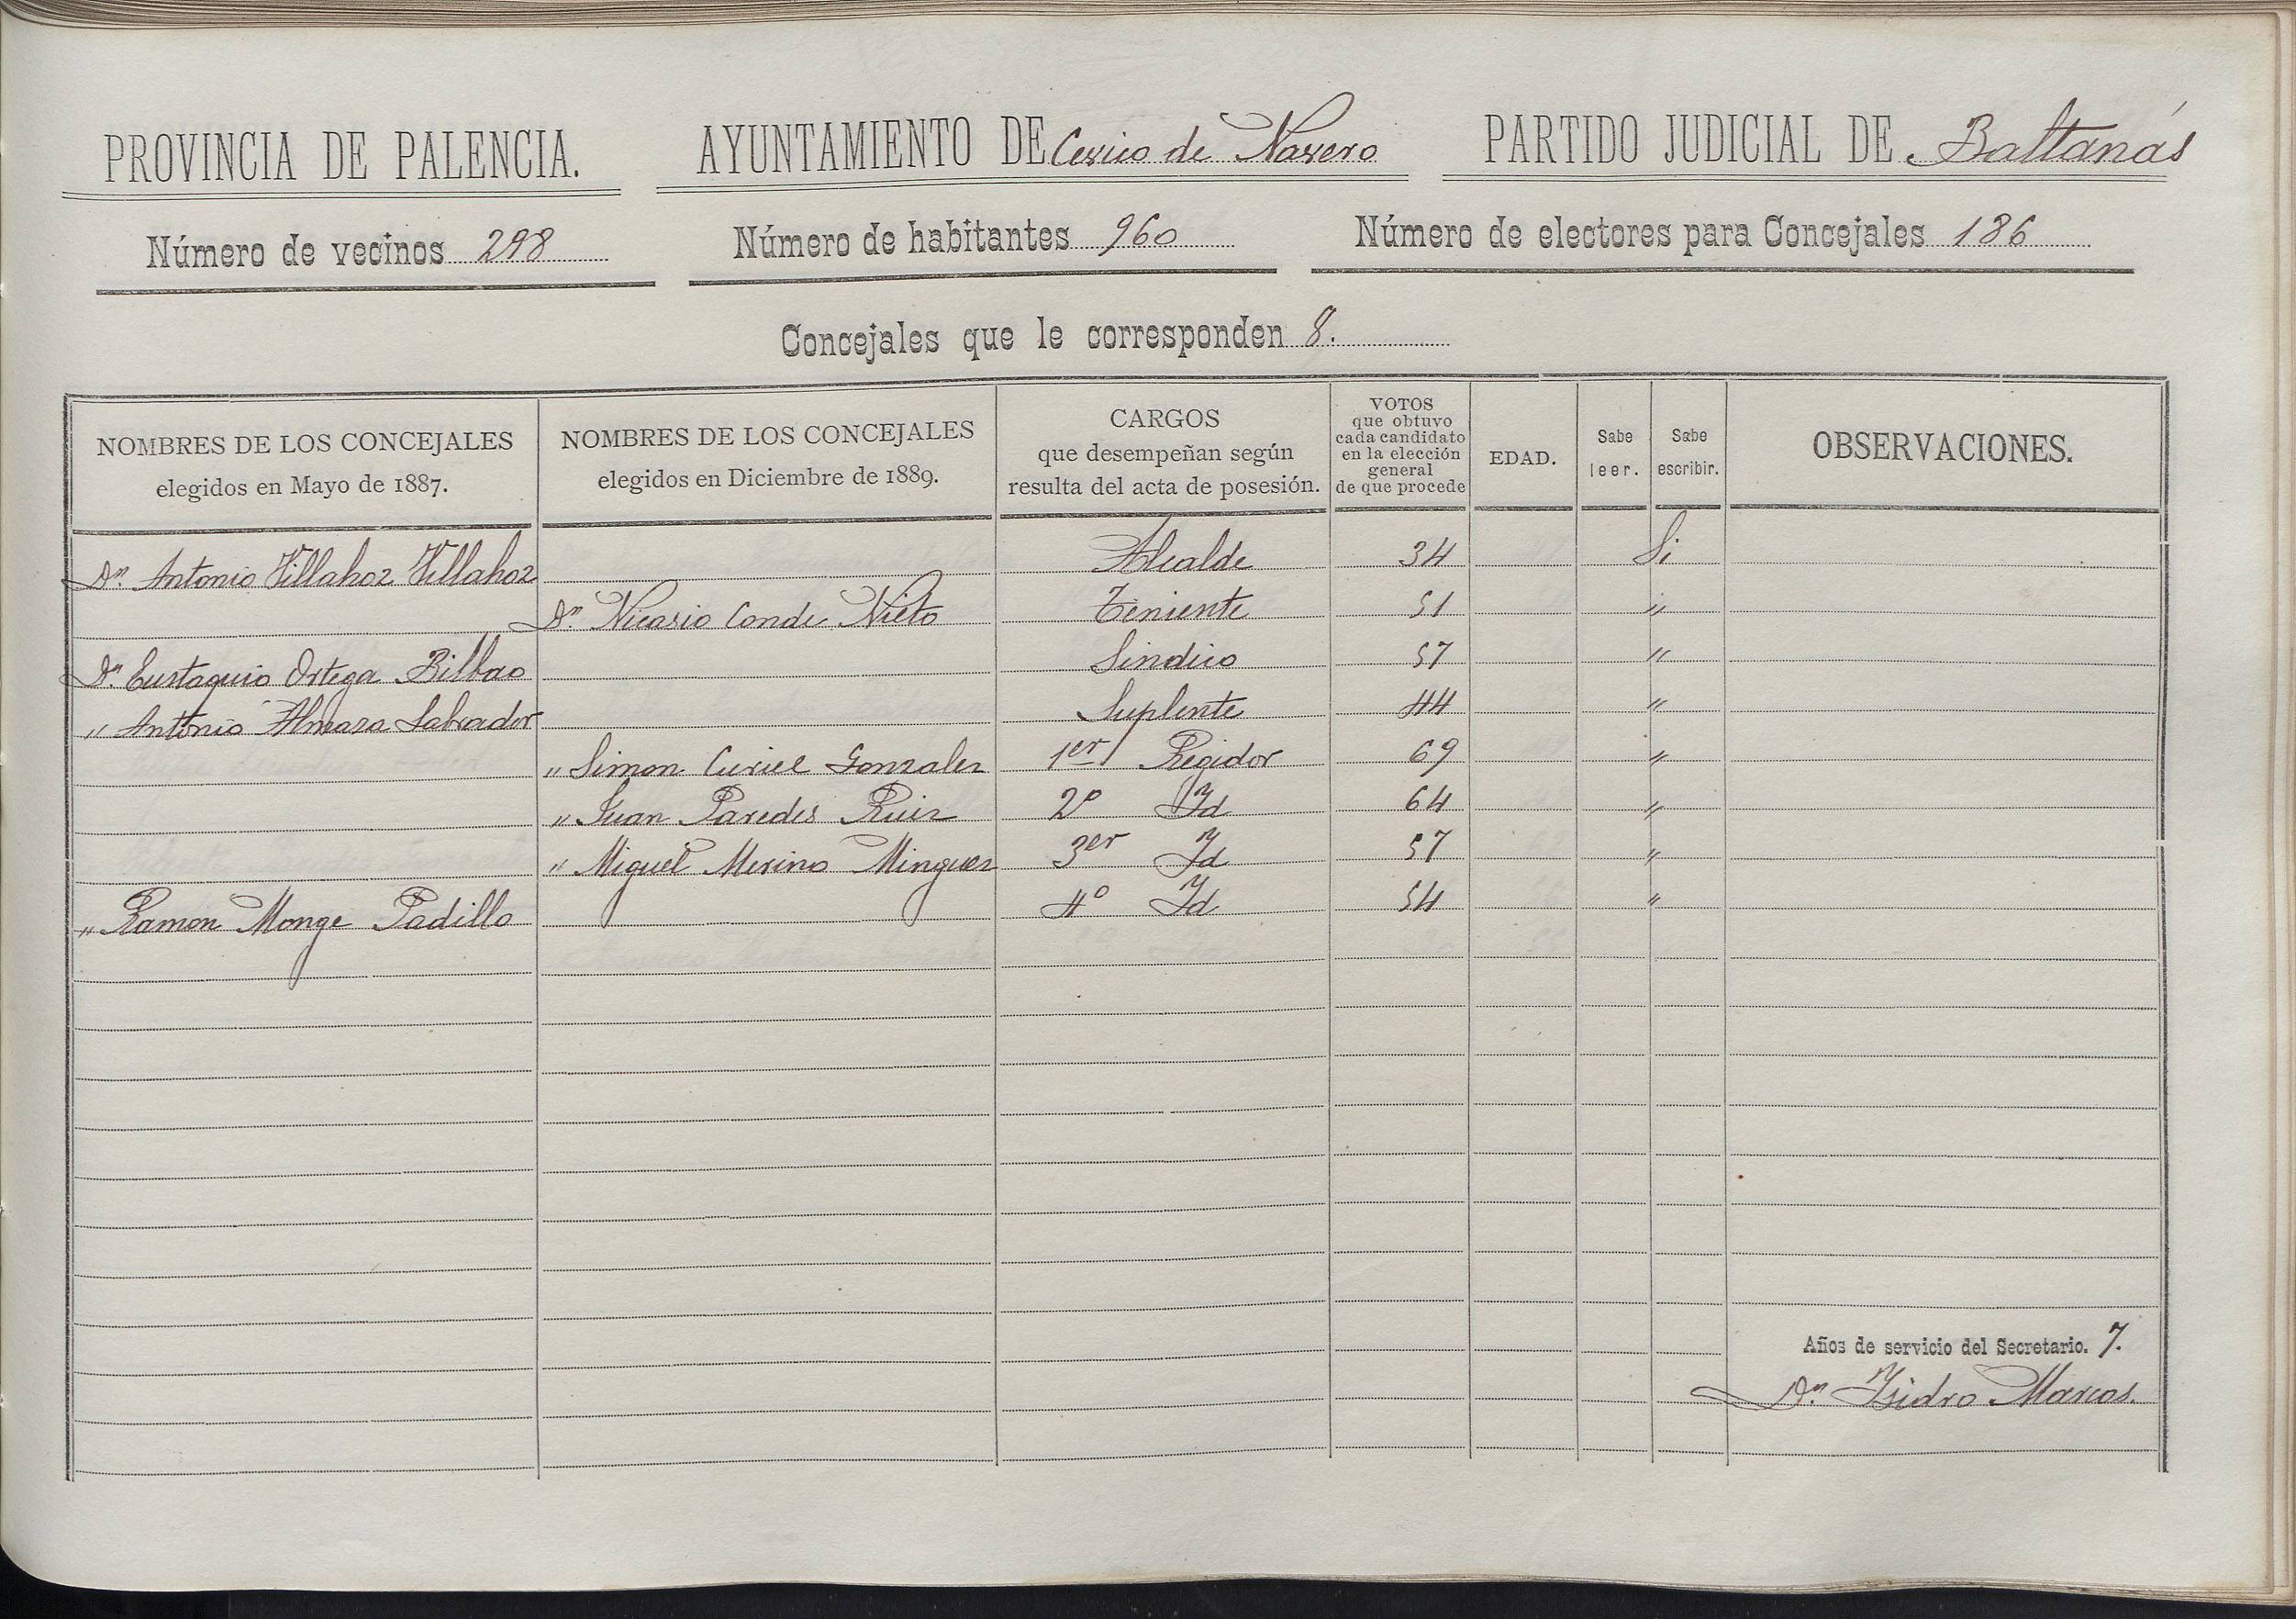 PROVINCIA DE PALENCIA. AYUNTAMIENTO DE Cevico de Navero PARTIDO JUDICIAL DE Baltanás
Número de vecinos 298 Número de habitantes 960 Número de electores para Concejales 186
Concejales que le corresponden 8.
NOMBRES DE LOS CONCEJALES
elegidos en Mayo de 1887.
NOMBRES DE LOS CONCEJALES
elegidos en Diciembre de 1889.
CARGOS
que desempeñan según
resulta del acta de posesión.
VOTOS
que obtuvo
cada candidato
en la elección
general
de que procede
EDAD.
Sabe
leer.
Sabe
escribir.
OBSERVACIONES.
Dn. Antonio Villahoz Villahoz Alcalde 34 Si
Dn. Nicasio Conde Nieto Teniente 51 "
Dn. Eustaquio Ortega Bilbao Sindico 57 "
" Antonio Almaza Labrador Suplente 44 "
" Simon Curiel Gonzalez 1er Regidor 69 "
" Juan Paredes Ruiz 2º Id 64 "
" Miguel Merino Minguez 3er Id 57 "
" Ramon Monge Padillo 4º Id 54 "
Años de servicio del Secretario. 7.
Dn. Isidro Marcos.